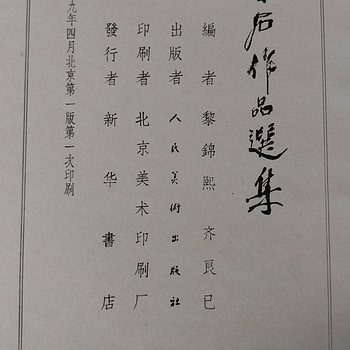 石作品選集
編者黎錦熙 齐良已
出版者人民美術出版社
印刷者北京美术印刷厂
發行者新华書店
九年四月北京第一版第一次印刷